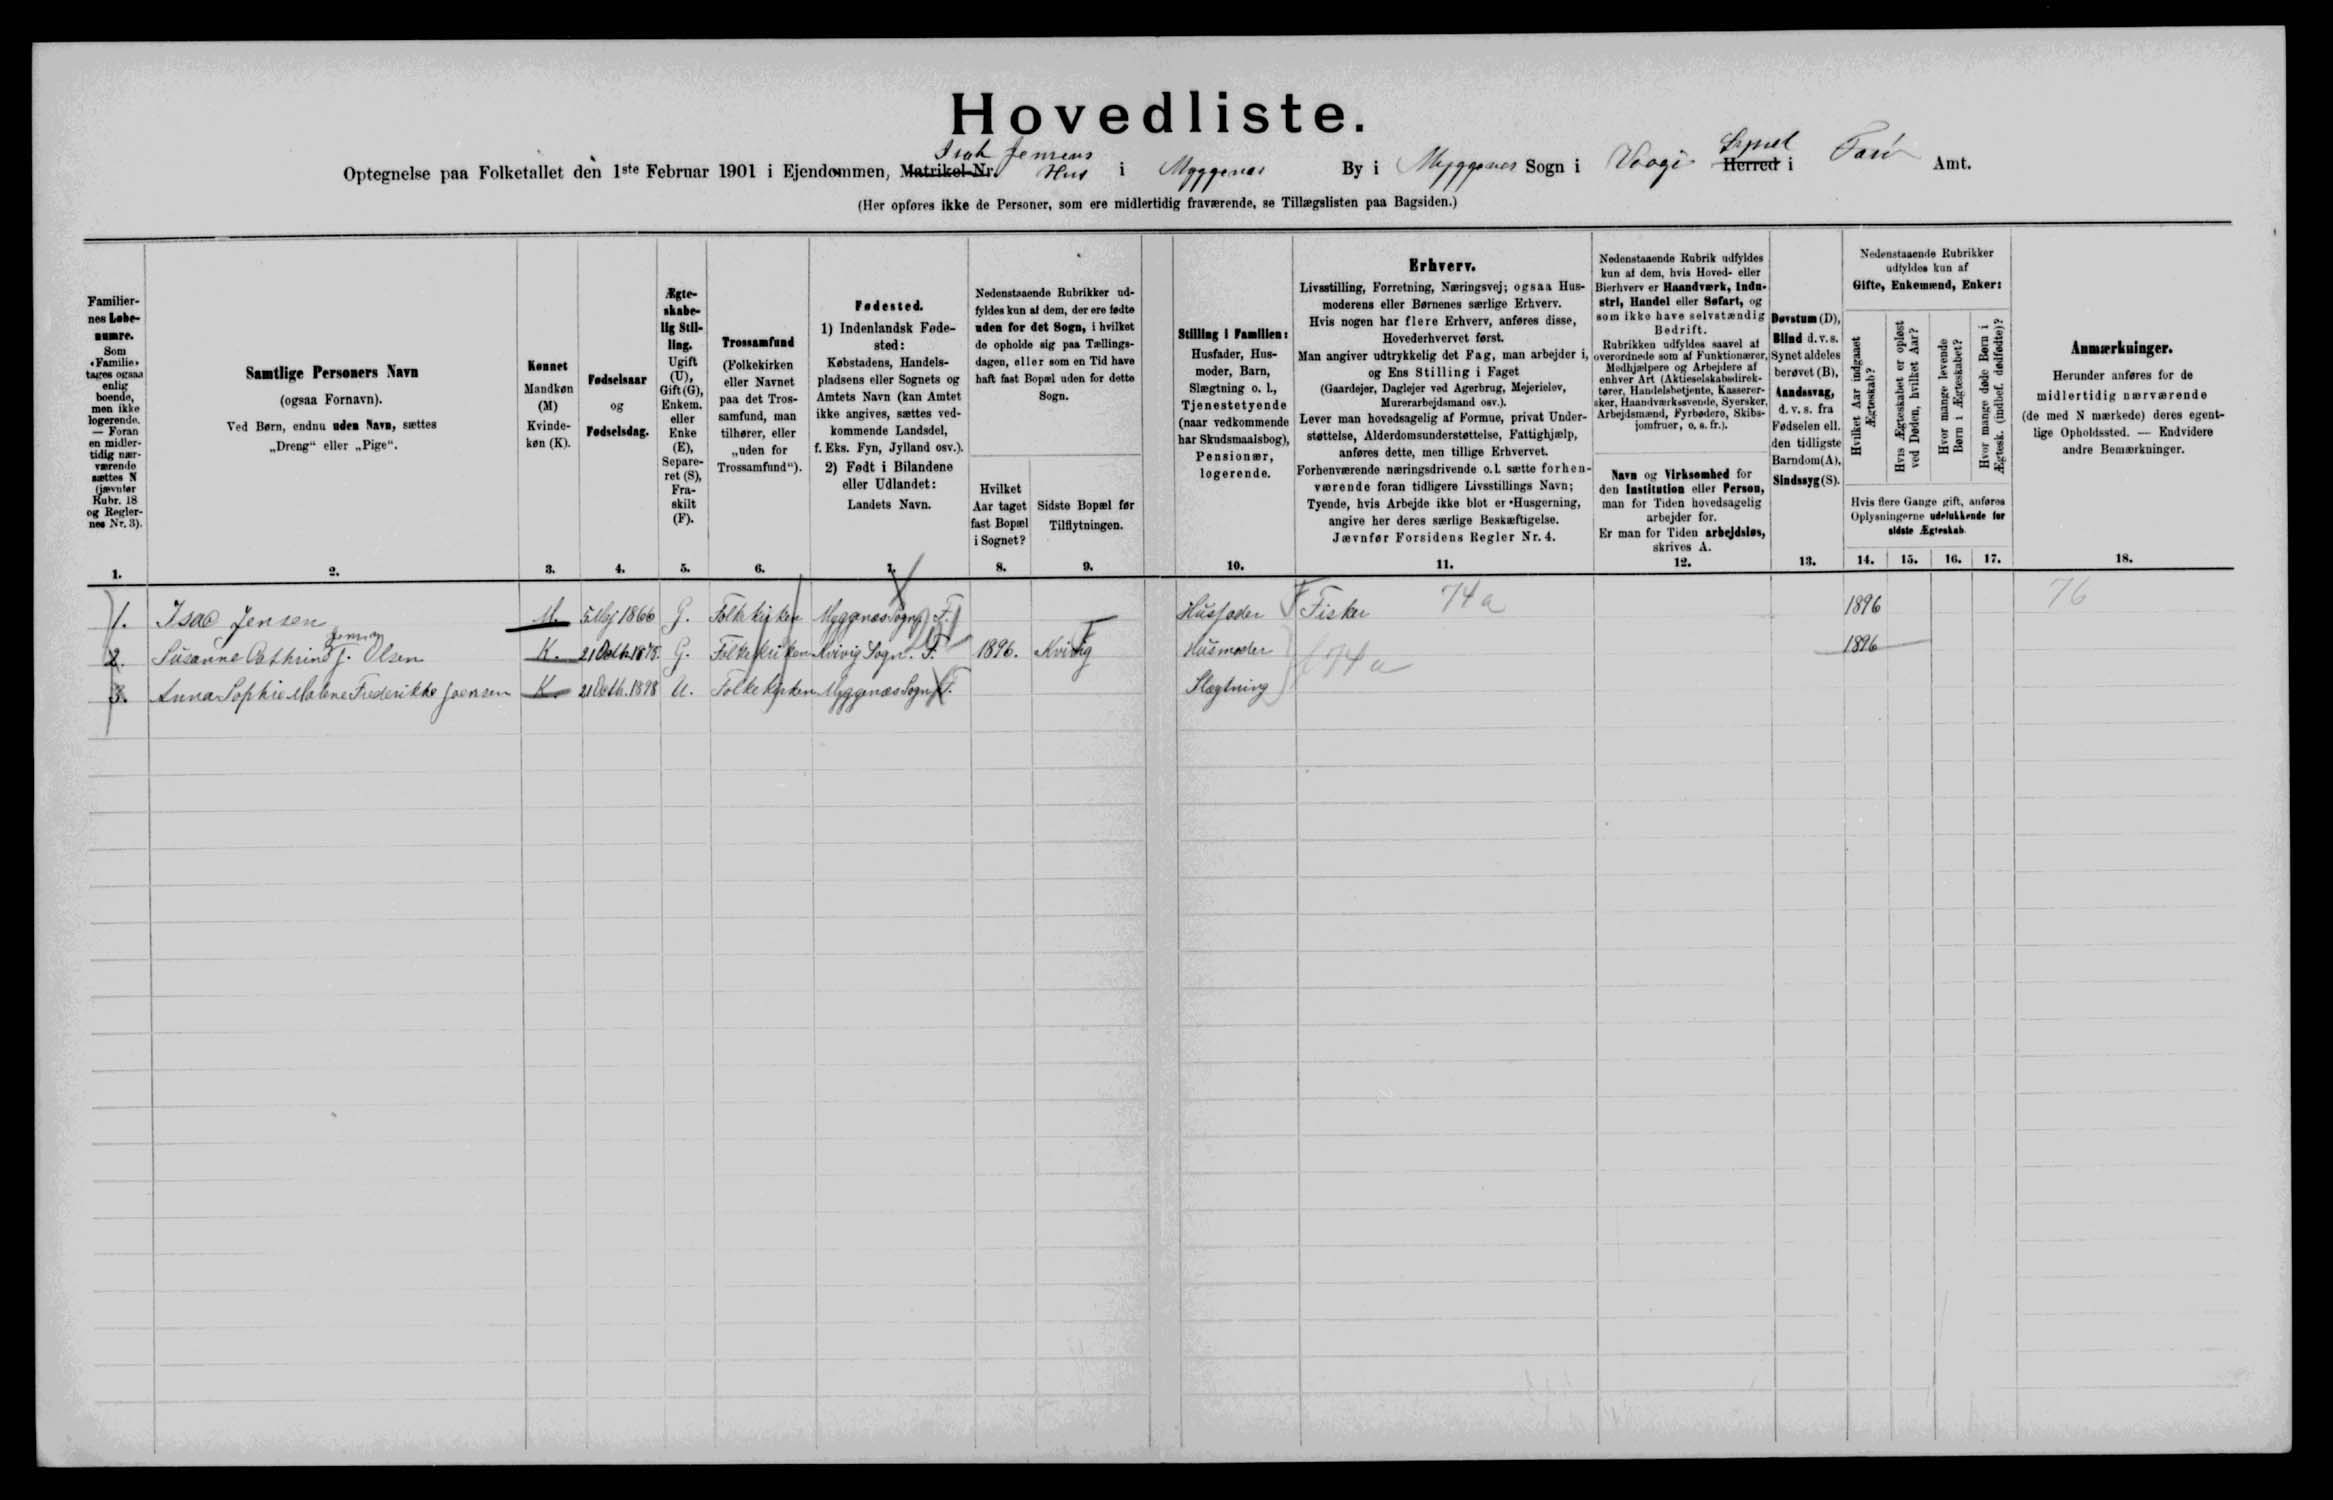 Hovedliste.
Optegnelse paa Folketallet den 1ste Februar 1901 i Ejendommen, Matrikel-Nr. Isak Jensens Hus i Myggenæs By i Myggenæs Sogn i Vaagø Syssel Herred i Færø Amt.
(Her opføres ikke de Personer, som ere midlertidig fraværende, se Tillægslisten paa Bagsiden.)
Familiernes Løbenumre.
Som «Familie» tages ogsaa enlig boende, men ikke logerende. — Foran en midlertidig nærværende sættes N (jævnfør Rubr. 18 og Reglernes Nr. 3).
1.
Samtlige Personers Navn
(ogsaa Fornavn).
Ved Børn, endnu uden Navn, sættes
„Dreng“ eller „Pige“.
2.
Kønnet
Mandkøn (M)
Kvindekøn (K).
3.
Fødselsaar
og
Fødselsdag.
4.
Ægteskabelig Stilling.
Ugift (U), Gift (G), Enkem. eller Enke (E), Separeret (S), Fraskilt (F).
5.
Trossamfund
(Folkekirken eller Navnet paa det Trossamfund, man tilhører, eller „uden for Trossamfund“).
6.
Fødested.
1) Indenlandsk Fødested:
Købstadens, Handelspladsens eller Sognets og Amtets Navn (kan Amtet ikke angives, sættes vedkommende Landsdel, f. Eks. Fyn, Jylland osv.).
2) Født i Bilandene eller Udlandet:
Landets Navn.
7.
Nedenstaaende Rubrikker udfyldes kun af dem, der ere fødte uden for det Sogn, i hvilket de opholde sig paa Tællingsdagen, eller som en Tid have haft fast Bopæl uden for dette Sogn.
Hvilket Aar taget fast Bopæl i Sognet?
8.
Sidste Bopæl før Tilflytningen.
9.
Stilling i Familien:
Husfader, Husmoder, Barn, Slægtning o. l., Tjenestetyende (naar vedkommende har Skudsmaalsbog), Pensionær, logerende.
10.
Erhverv.
Livsstilling, Forretning, Næringsvej; ogsaa Husmoderens eller Børnenes særlige Erhverv.
Hvis nogen har flere Erhverv, anføres disse, Hovederhvervet først.
Man angiver udtrykkelig det Fag, man arbejder i, og Ens Stilling i Faget
(Gaardejer, Daglejer ved Agerbrug, Mejerielev, Murerarbejdsmand osv.).
Lever man hovedsagelig af Formue, privat Understøttelse, Alderdomsunderstøttelse, Fattighjælp, anføres dette, men tillige Erhvervet.
Forhenværende næringsdrivende o. l. sætte forhenværende foran tidligere Livsstillings Navn;
Tyende, hvis Arbejde ikke blot er Husgerning, angive her deres særlige Beskæftigelse.
Jævnfør Forsidens Regler Nr. 4.
11.
Nedenstaaende Rubrik udfyldes kun af dem, hvis Hoved- eller Bierhverv er Haandværk, Industri, Handel eller Søfart, og som ikke have selvstændig Bedrift.
Rubrikken udfyldes saavel af overordnede som af Funktionærer, Medhjælpere og Arbejdere af enhver Art (Aktieselskabsdirektører, Handelsbetjente, Kasserersker, Haandværkssvende, Syersker, Arbejdsmænd, Fyrbødere, Skibsjomfruer, o. s. fr.).
Navn og Virksomhed for den Institution eller Person, man for Tiden hovedsagelig arbejder for.
Er man for Tiden arbejdsløs, skrives A.
12.
Døvstum (D), Blind d. v. s. Synet aldeles berøvet (B), Aandssvag, d. v. s. fra Fødselen ell. den tidligste Barndom (A), Sindssyg (S).
13.
Nedenstaaende Rubrikker udfyldes kun af
Gifte, Enkemænd, Enker:
Hvilket Aar indgaaet Ægteskab?
Hvis Ægteskabet er opløst ved Døden, hvilket Aar?
Hvor mange levende Børn i Ægteskabet?
Hvor mange døde Børn i Ægtesk. (indbef. dødfødte)?
Hvis flere Gange gift, anføres Oplysningerne udelukkende for sidste Ægteskab.
14. 15. 16. 17.
Anmærkninger.
Herunder anføres for de midlertidig nærværende (de med N mærkede) deres egentlige Opholdssted. — Endvidere andre Bemærkninger.
18.
1. Isac Jensen M. 5 Maj 1866 G. Folkekirken Myggenæs Sogn. F. Husfader Fisker 74a 1896 76
2. Susanne Cathrine J. Jensen Olsen K. G. Folkekirken Kvivig Sogn. F. 1896. Kvivig Husmoder 74a 1896
3. Anna Sophie Malene Frederikke Joensen K. 21 Octb. 1898 U. Folkekirken Myggenæs Sogn. F. Slægtning